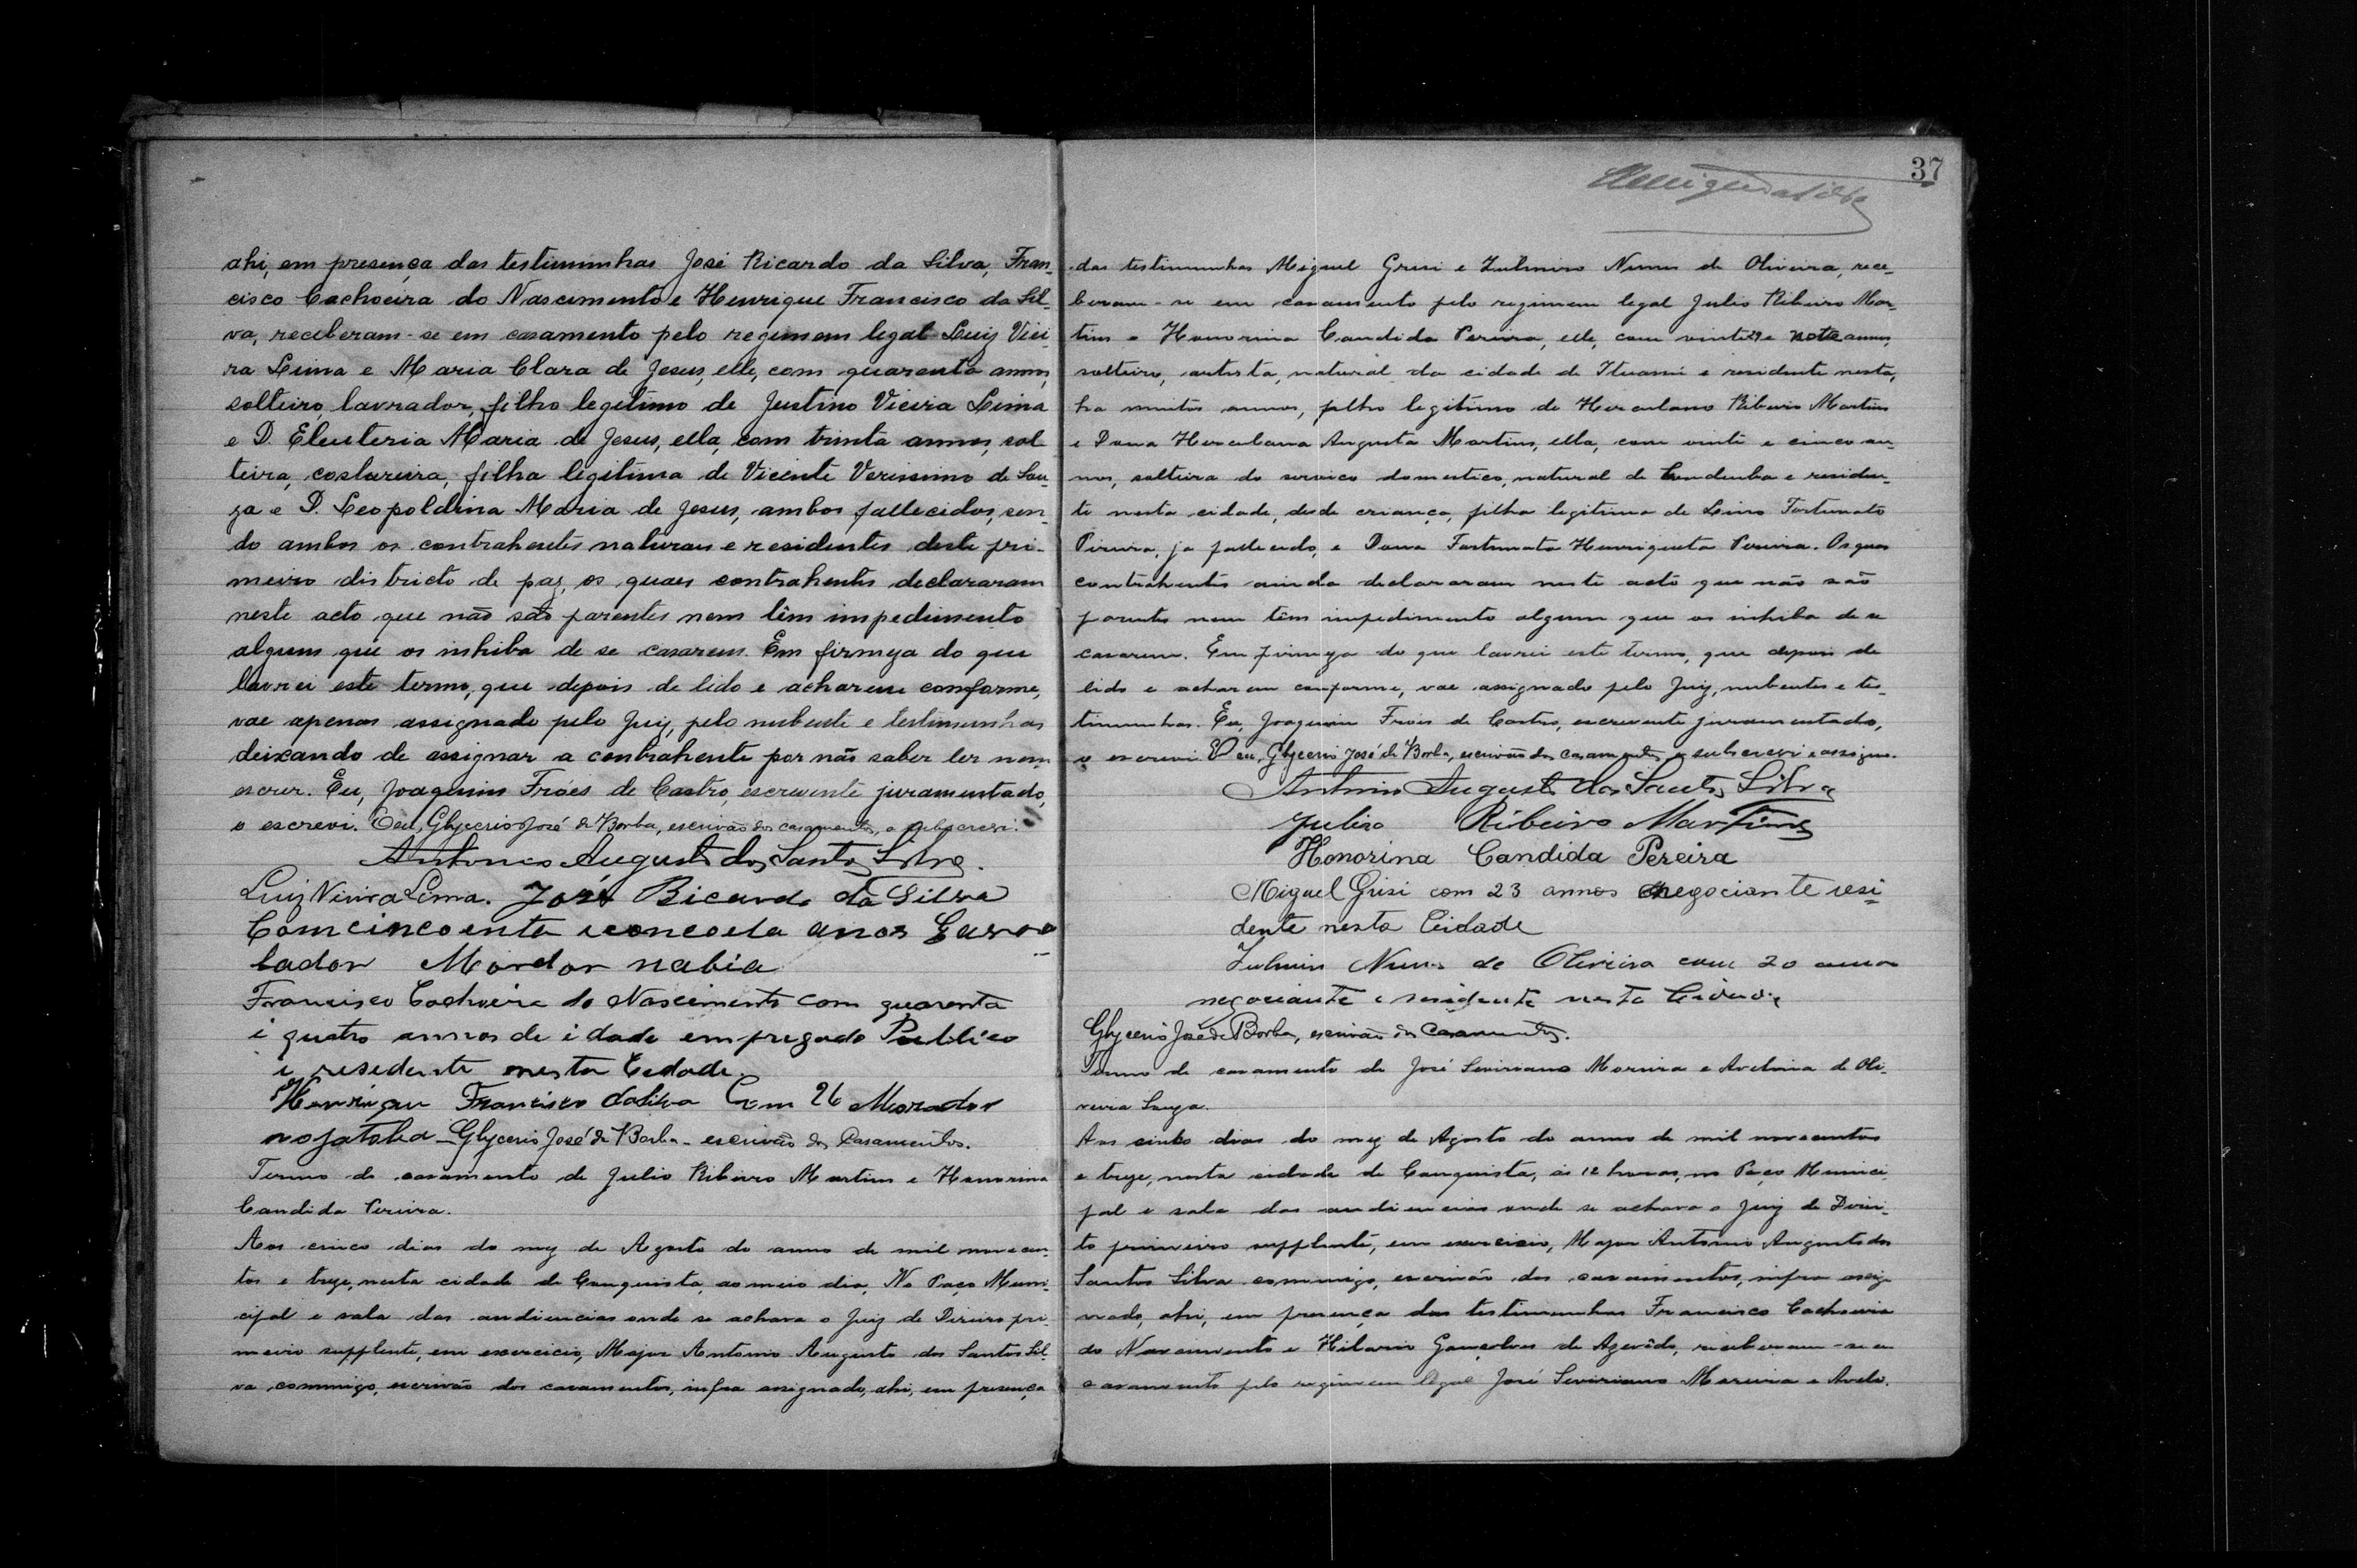 ahi, em presença das testimunhas José Ricardo da Silva, Fran-
cisco Cachoeira do Nascimento e Henrique Francisco da Sil-
va, receberam-se em casamento pelo regimem legal Luiz Viei-
ra Lima e Maria Clara de Jesus, elle, com quarenta annos,
solteiro, lavrador, filho legitimo de Justino Vieira Lima
e D. Eleuteria Maria de Jesus, ella, com trinta annos, sol-
teira, costureira, filha legitima de Vicente Verissimo de Sou-
za e D. Leopoldina Maria de Jesus, ambos fallecidos, sen-
do ambos os contrahentes naturaes e residentes deste pri-
meiro districto de paz, os quaes contrahentes declararam
neste acto que não são parentes nem têm impedimento
algum que os inhiba de se casarem. Em firmeza do que
lavrei este termo, que depois de lido e acharem conforme,
vae apenas assignado pelo Juiz, pelo nubente e testimunhas
deixando de assignar a contrahente por não saber ler nem
escrever. Eu, Joaquim Fróes de Castro, escrevente juramentado,
o escrevi. E eu, Glycerio José de Borba, escrivão dos casamentos, o subscrevi.
Antonio Augusto dos Santos Silva.
Luiz Vieira Lima. José Ricardo da Silva
Com cincoenta annos
lador Morador nabia
Francisco Cachoeira do Nascimento com quarenta
i quatro annos de idade empregado Publico
i residente nesta Cedade.
Henrique Francisco daSilva Com 26 Morador
Glycerio José de Borba - escrivão dos Casamentos.
Termo de casamento de Julio Ribeiro Martins e Honorina
Candida Pereira.
Aos cinco dias do mez de Agosto do anno de mil novecen-
tos e treze, nesta cidade de Conquista, ao meio dia, No Paço Muni-
cipal e sala das audiencias onde se achava o Juiz de Direiro pri-
meiro supplente, em exercicio, Major Antonio Augusto dos Santos Sil-
va commigo, escrivão dos casamentos, infra assignado, ahi, em presença
37
das testimunhas Miguel Grisi e Zulmiro Nunes de Oliveira, rece-
beram-se em casamento pelo regimem legal Julio Ribeiro Mar-
tins e Honorina Candida Pereira, elle, com vinte e sete annos,
solteiro, artista, natural da cidade de Ituassú e residente nesta,
ha muitos annos, filho legitimo de Herculano Ribeiro Martins
e Dona Herculana Augusta Martins, ella, com vinte e cinco an-
nos, solteira do serviço domestico, natural de Condeuba e residen-
te nesta cidade, desde criança, filha legitima de Lino Fortunato
Pereira, ja fallecido, e Dona Fortunata Henriqueta Pereira. Os quaes
contrahentes ainda declararam neste acto que não são
parentes nem têm impedimento algum que os inhiba de se
casarem. Em firmeza do que lavrei este termo, que depois de
lido e acharem conforme, vae assignado pelo Juiz, nubentes e tes-
timunhas. Eu, Joaquim Fróes de Castro, escrevente juramentado,
o escrevi. E eu, Glycerio José de Borba, escrivão dos casamentos, o subscrevi e assigno.
Antonio Augusto dos Santos Silva
Julio Ribeiro Martins
Honorina Candida Pereira
Miguel Grisi com 23 annos negociante resi-
dente nesta Cidade
Zulmiro Nunes de Oliveira com 20 annos
negociante e residente nesta Cidade
Glycerio José de Borba, escrivão dos Casamentos.
Termo de casamento de José Siviriano Moreira e Avelina de Oli-
veira Souza.
Aos cinko dias do mez de Agosto do anno de mil novecentos
e treze, nesta cidade de Conquista, ás 12 horas, no Paço Munici-
pal e sala das audiencias onde se achava o Juiz de Direi-
to primeiro supplente, em exercicio, Major Antonio Augusto dos
Santos Silva commigo, escrivão dos casamentos, infra assig-
nado, ahi, em presença das testimunhas Francisco Cachoeira
do Nascimento e Hilario Gonçalves de Azevêdo, receberam-se em
casamento pelo regimem legal José Siviriano Moreira e Aveli-